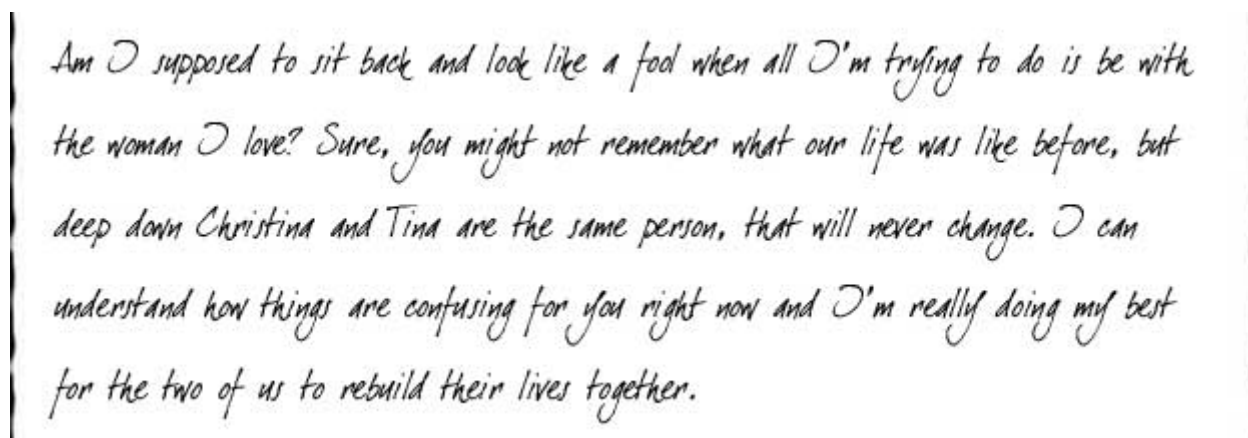 Am I supposed to sit back and look like a fool when all I'm trying to do is be with
the woman I love? Sure, you might not remember what our life was like before, but
deep down Christina and Tina are the same person, that will never change. I can
understand how things are confusing for you right now and I'm really doing my best
for the two of us to rebuild their lives together.